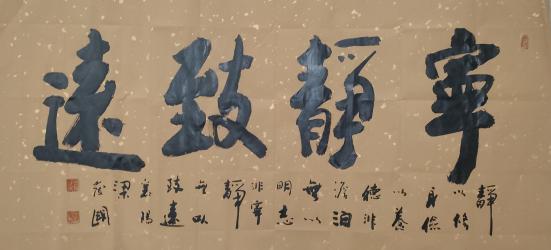 寧靜致遠
靜
以修
身儉
以養
德非
澹泊
無以
明志
非寧
靜
無以
致遠
襄陽
梁
國